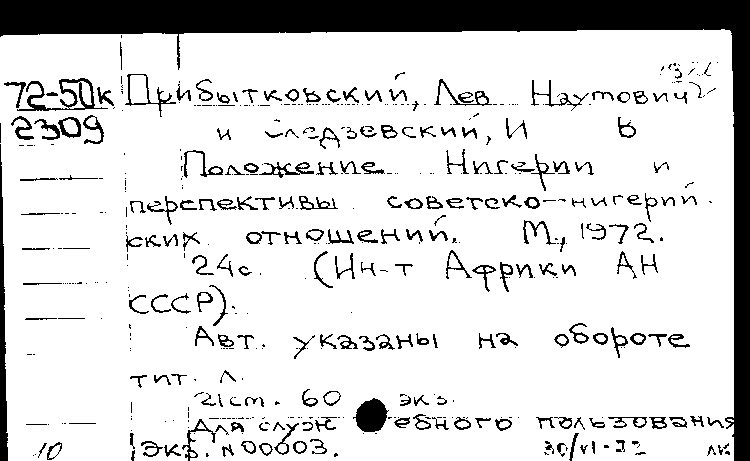 72-50к Прибытковский, Лев Наумович
2309 и Следзевский, И В
Положение Нигерии и
перспективы советско-нигерий-
ских отношений. М., 1972.
24с. (Ин-т Африки АН
СССР).
Авт. указаны на обороте
тит. л.
21см. 60 экз.
Для служебного пользования
10 Экз. N 00003. 30/VI-72 лк